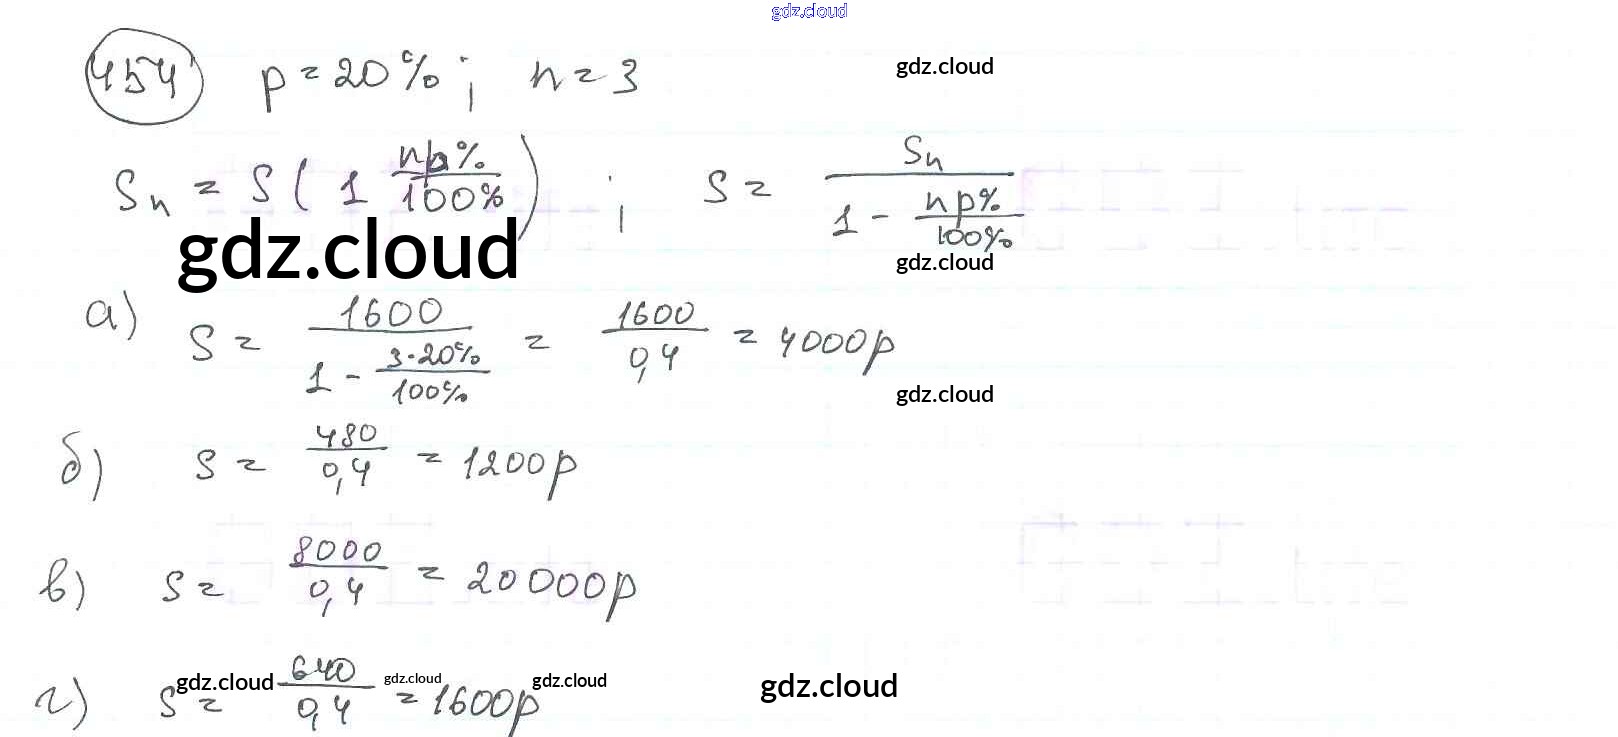 gdz.cloud
454 p = 20% ; n = 3 gdz.cloud
Sn = S ( 1 np%/100% ) ; S = Sn / (1 - np%/100%)
gdz.cloud gdz.cloud
а) S = 1600 / (1 - 3·20%/100%) = 1600/0,4 = 4000р
gdz.cloud
б) S = 480/0,4 = 1200р
в) S = 8000/0,4 = 20000р
г) S = 640/0,4 = 1600р
gdz.cloud gdz.cloud gdz.cloud gdz.cloud